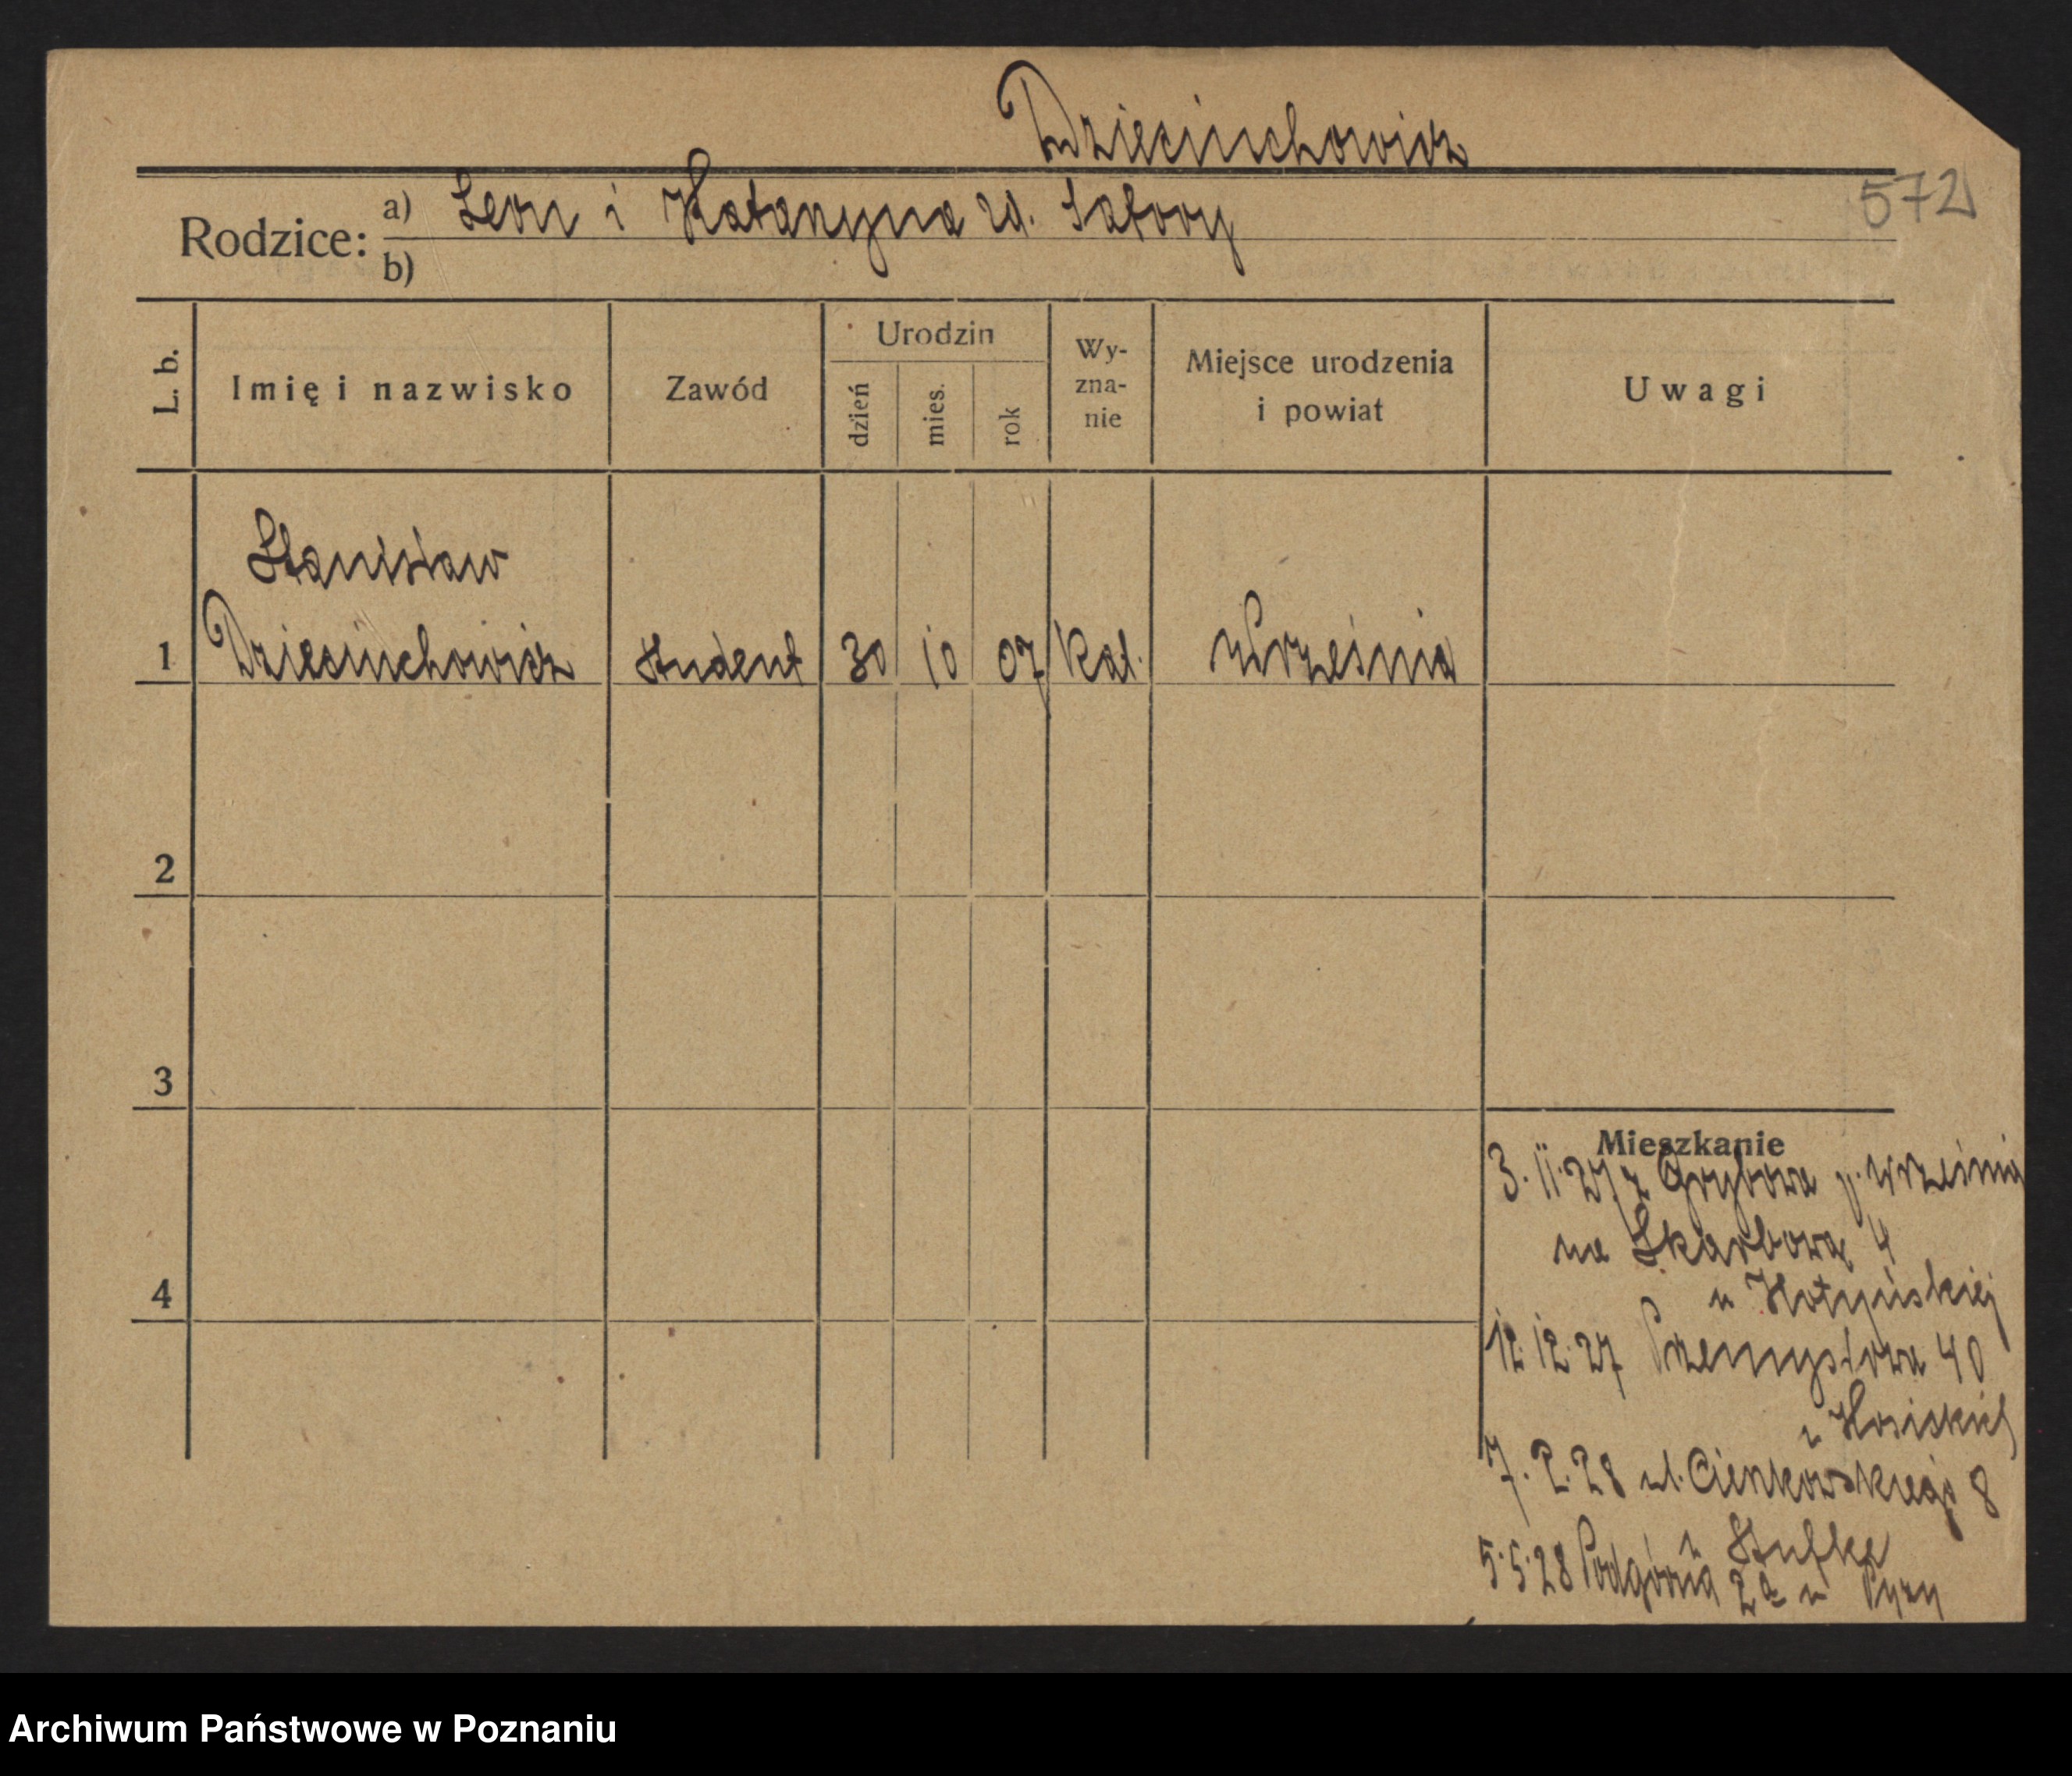 Dzieciuchowicz
572
Rodzice: a) Leon i Katarzyna zd. Satory
b)
L. b. Imię i nazwisko Zawód Urodzin dzień mies. rok Wyznanie Miejsce urodzenia i powiat Uwagi
Stanisław
1 Dzieciuchowicz student 30 10 07 kat. Września
2
3
4
Mieszkanie
3. 11. 27 z Grzybowa p. Września
na Skarbową 4
u
12. 12. 27 Przemysłowa 40
u
7. 2. 28 ul. Cienkowskiego 8
u
5. 5. 28 Podgórna 2a u Pyzy
Archiwum Państwowe w Poznaniu